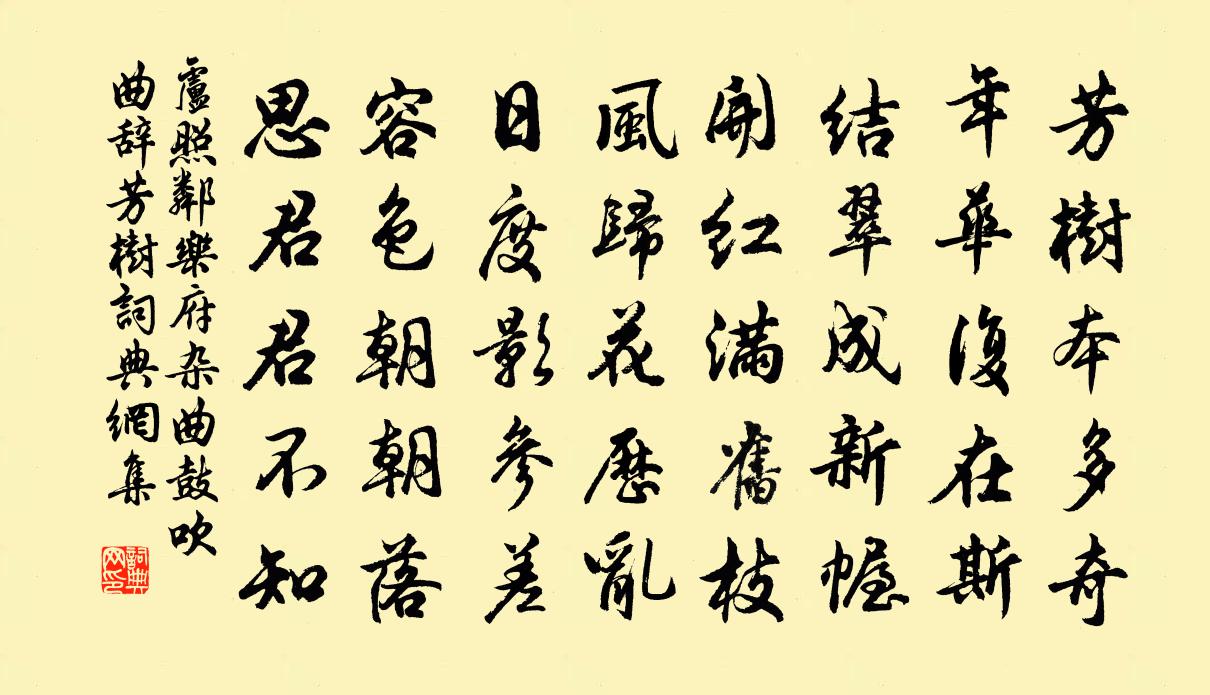 芳樹本多奇
年華復在斯
結翠成新幄
開紅滿舊枝
風歸花歷亂
日度影參差
容色朝朝落
思君君不知
盧照鄰樂府杂曲鼓吹
曲辞芳樹詞典網集
詞典
网印